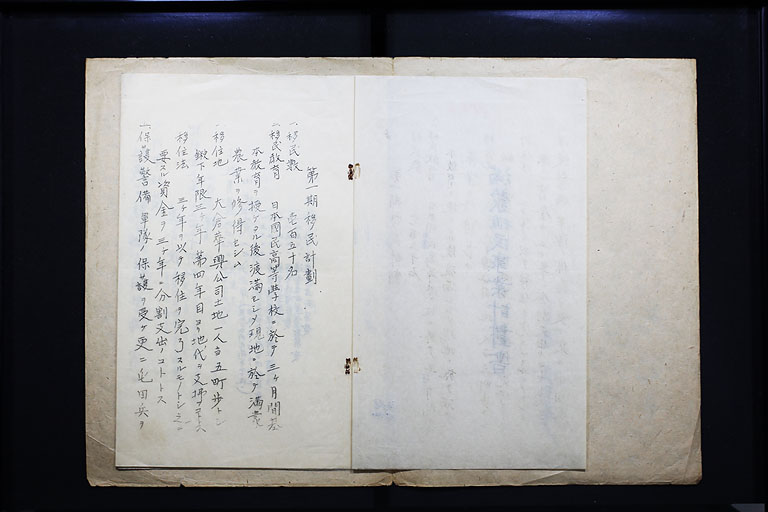 第一期移民計劃
一、移民数 壱百五十名
一、移民教育 日本國民高等學校ニ於テ三ヶ月間基
本教育ヲ授ケタル後渡満セシメ現地ニ於テ満蒙
農業ヲ修得セシム
一、移住地 大倉華興公司土地一人五町歩トシ
年限三ヶ年第四年目ヨリ地代ヲ支拂フコトス
移住法 三ヶ年ヲ以テ移住ヲ完了スルモノトシ之ニ
要スル資金ヲ三ヶ年ニ分割支出ノコトトス
一、保護警備 軍隊ノ保護ヲ受ケ更ニ屯田兵ヲ